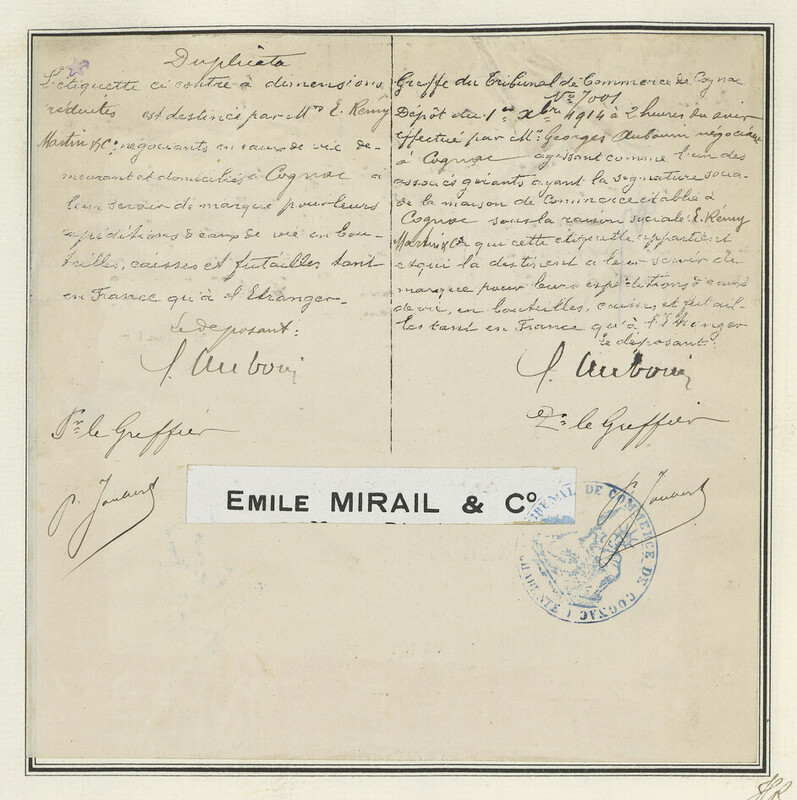 Duplicata
L'étiquette ci contre à dimensions
réduites est destinée par Mrs E. Rémy
Martin & Co: négociants en eaux de vie de-
meurant et domiciliés à Cognac à
leur servir de marque pour leurs
expéditions d'eaux de vie en bou-
teilles, caisses et futailles tant
en France qu'à l'Etranger-
Le déposant:
Pr le Greffier
Greffe du Tribunal de Commerce de Cognac
No 7001
Dépôt du 1er Xbre 1914 à 2 heures du soir
effectué par Mr. Georges Auboin négociant
à Cognac agissant comme l'un des
associés gérants ayant la signature socia-
le de la maison de Commerce établie à
Cognac sous la raison sociale: E. Rémy
Martin & Co à qui cette étiquette appartient
et qui la destinent à leur servir de
marque pour leurs expéditions d'eaux
de vie, en bouteilles, caisses, et futail-
les tant en France qu'à l'Etranger
le déposant:
J. Auboin
Pr le Greffier
P. Joubert
EMILE MIRAIL & Co
TRIBUNAL DE COMMERCE DE COGNAC (CHARENTE)